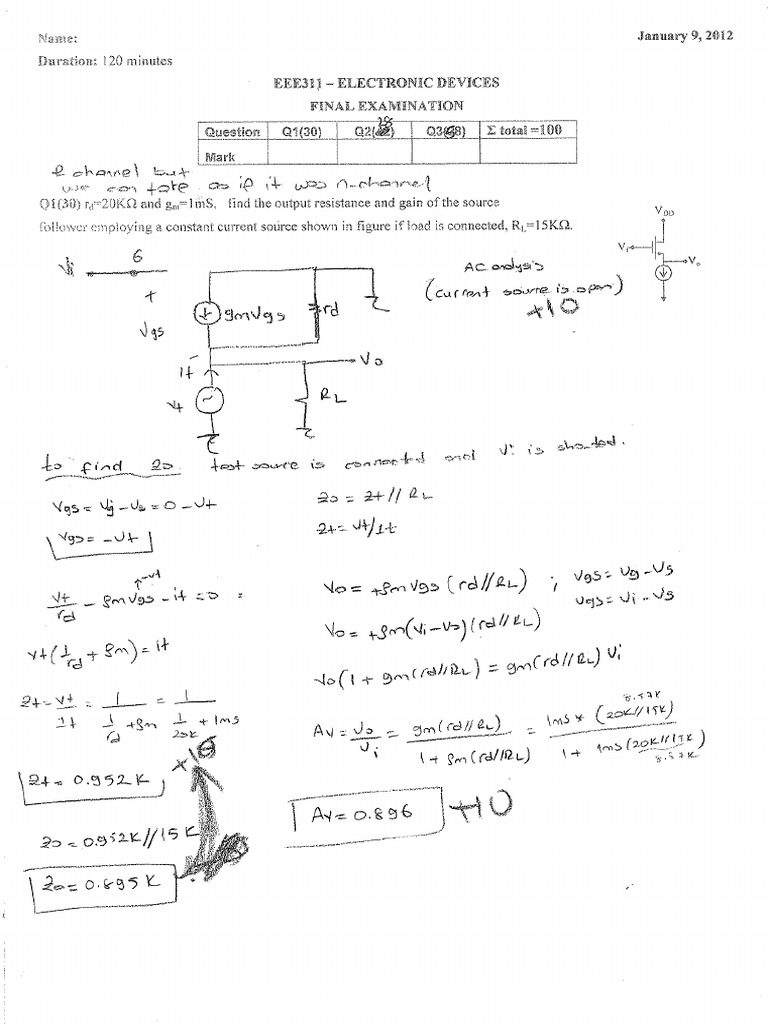 Name:
January 9, 2012
Duration: 120 minutes
EEE311 – ELECTRONIC DEVICES
FINAL EXAMINATION
Question Q1(30) Q2( 28 ) Q3( 8) Σ total =100
Mark
channel but
we can take as if it was n-channel
Q1(30) rd=20KΩ and gm=1mS, find the output resistance and gain of the source
follower employing a constant current source shown in figure if load is connected, RL=15KΩ.
VDD
Vi
Vo
Vi
G
+
Vgs
-
gmVgs
rd
AC analysis
(current source is open)
+10
It
Vt
Vo
RL
to find Zo test source is connected and Vi is shorted.
Vgs = Vg - Vs = 0 - Vt
Vgs = -Vt
Zo = Zt // RL
Zt = Vt/It
-Vt
Vt/rd - gmVgs - it = 0
Vt(1/rd + gm) = it
Zt = Vt/It = 1/(1/rd + gm) = 1/(1/20K + 1mS)
Zt = 0.952K
+10
Zo = 0.952K // 15K
Zo = 0.895K
Vo = +gmVgs (rd//RL) ; Vgs = Vg - Vs
Vgs = Vi - Vs
Vo = +gm(Vi-Vo)(rd//RL)
Vo(1 + gm(rd//RL) = gm(rd//RL) Vi
8.57K
Av = Vo/Vi = gm(rd//RL)/(1 + gm(rd//RL)) = 1mS * (20K//15K)/(1 + 1mS(20K//15K))
8.57K
Av = 0.896
+10